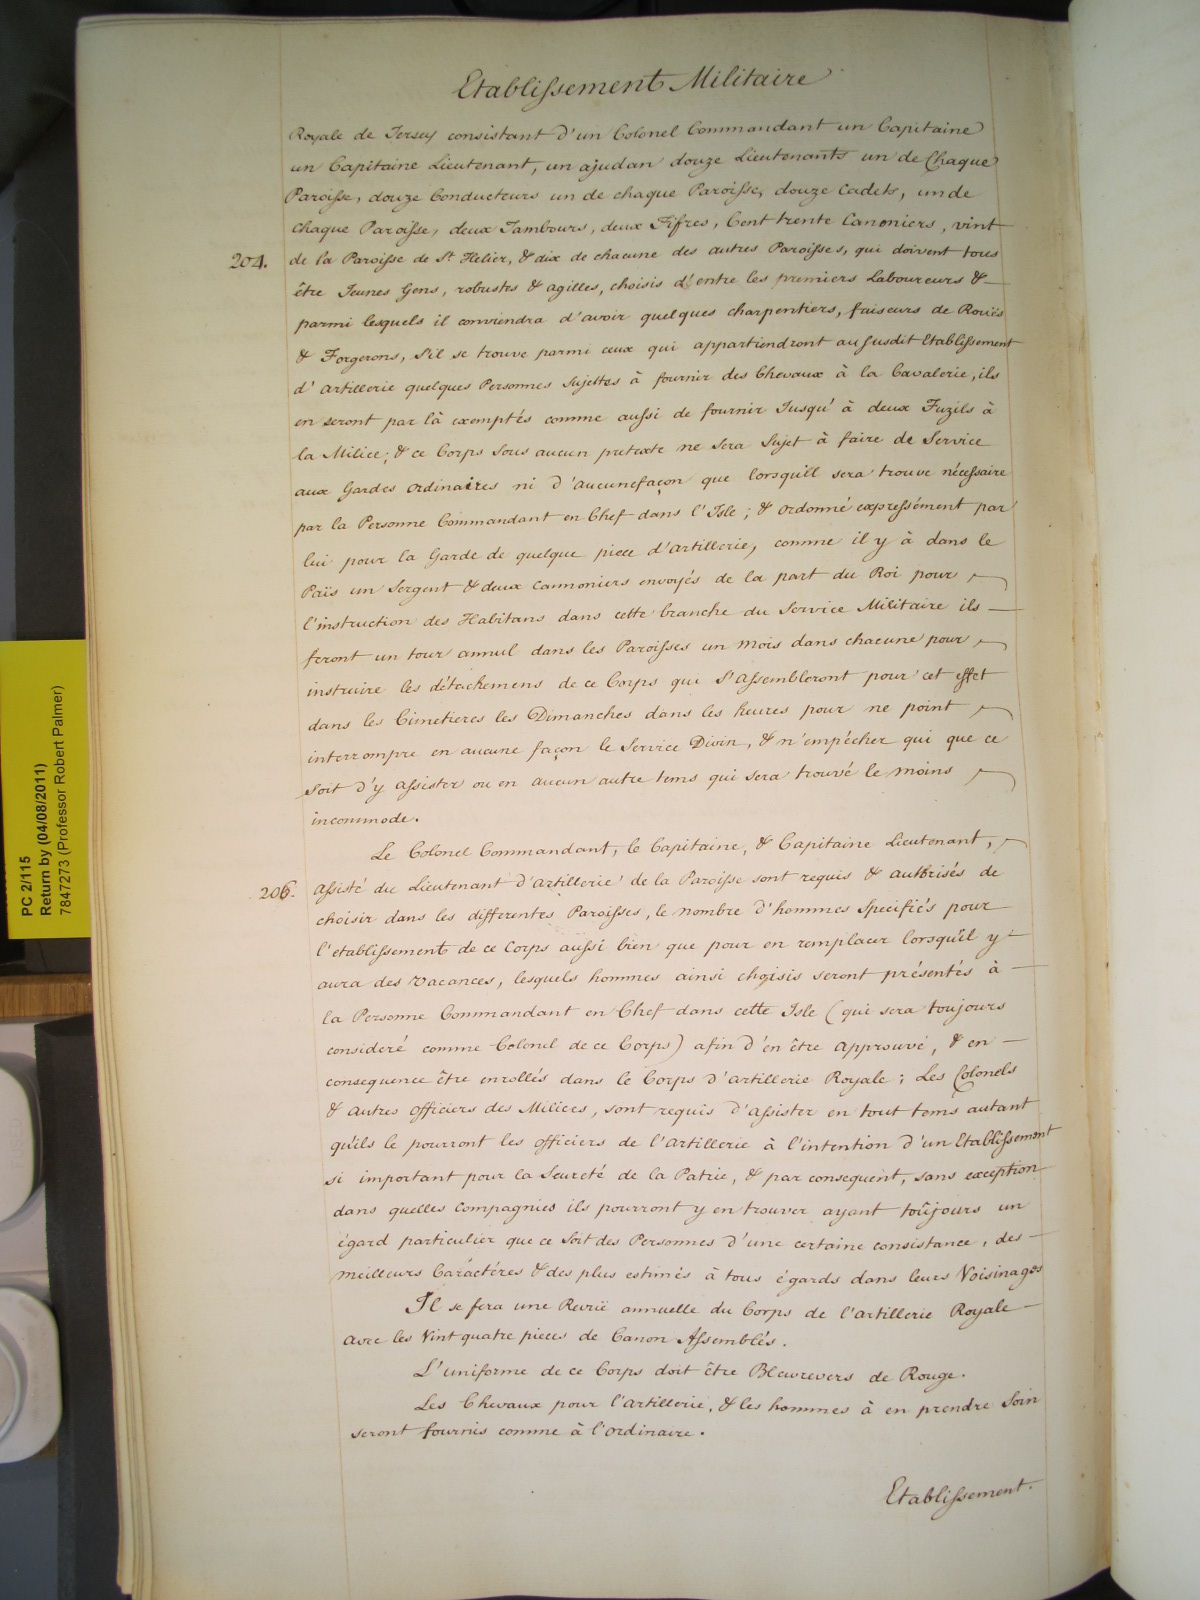 Etablissement Militaire
Royale de Jersey consistant d'un Colonel Commandant un Capitaine
un Capitaine Lieutenant, un ajudan douze Lieutenants un de Chaque
Paroisse, douze Conducteurs un de chaque Paroisse, douze Cadets, un de
chaque Paroisse, deux Tambours, deux Fifres, Cent trente Canoniers, vint
204. de la Paroisse de St. Helier, & dix de chacune des autres Paroisses, qui doivent tous
être Jeunes Gens, robustes & agilles, choisis d'entre les premiers Laboureurs &
parmi lesquels il conviendra d'avoir quelques charpentiers, faiseurs de Rouës
& Forgerons, S'il se trouve parmi ceux qui appartiendront au susdit Etablissement
d'Artillerie quelques Personnes Sujettes à fournir des Chevaux à la Cavalerie, ils
en seront par là exemptés comme aussi de fournir Jusqu'à deux Fuzils à
la Milice; & ce Corps Sous aucun pretexte ne Sera Sujet à faire de Service
aux Gardes ordinaires ni d'aucune façon que lorsqu'il sera trouve nécessaire
par la Personne Commandant en Chef dans l'Isle; & ordonné expressément par
lui pour la Garde de quelque piece d'artillerie, comme il y à dans le
Païs un Sergent & deux cannoniers envoyés de la part du Roi pour
l'instruction des Habitans dans cette branche du Service Militaire ils
feront un tour annul dans les Paroisses un Mois dans chacune pour
instruire les détachemens de ce Corps qui S'assembleront pour cet effet
dans les Cimetieres les Dimanches dans les heures pour ne point
interrompre en aucune façon le Service Divin, & n'empêcher qui que ce
soit d'y assister ou en aucun autre tems qui sera trouvé le moins
incommode.
Le Colonel Commandant, le Capitaine, & Capitaine Lieutenant,
206. Assisté du Lieutenant d'artillerie de la Paroisse sont requis & authrisés de
choisir dans les differentes Paroisses, le nombre d'hommes Specifiés pour
l'etablissement de ce Corps aussi bien que pour en remplacer lorsqu'il y
aura des Vacances, lesquels hommes ainsi choisis seront présentés à
la Personne Commandant en Chef dans cette Isle (qui sera toujours
consideré comme Colonel de ce Corps) afin d'en être Approuvé, & en
consequence être enrollés dans le Corps d'artillerie Royale; Les Colonels
& autres officiers des Milices, sont requis d'assister en tout tems autant
qu'ils le pourront les officiers de l'artillerie à l'intention d'un Etablissement
si important pour la Seureté de la Patrie, & par consequent, sans exception
dans quelles Compagnies ils pourront y en trouver ayant toûjours un
égard particulier que ce Soit des Personnes d'une certaine consistance, des
meilleurs Caractéres & des plus estimés à tous égards dans leurs Voisinages
Il se fera une Revüe annuelle du Corps de l'artillerie Royale
avec les Vint quatre pieces de Canon Assemblés.
L'uniforme de ce Corps doit être Bleu revers de Rouge.
Les Chevaux pour l'artillerie, & les hommes à en prendre Soin
seront fournis comme à l'ordinaire.
Etablissement.
PC 2/115
Return by (04/08/2011)
7847273 (Professor Robert Palmer)